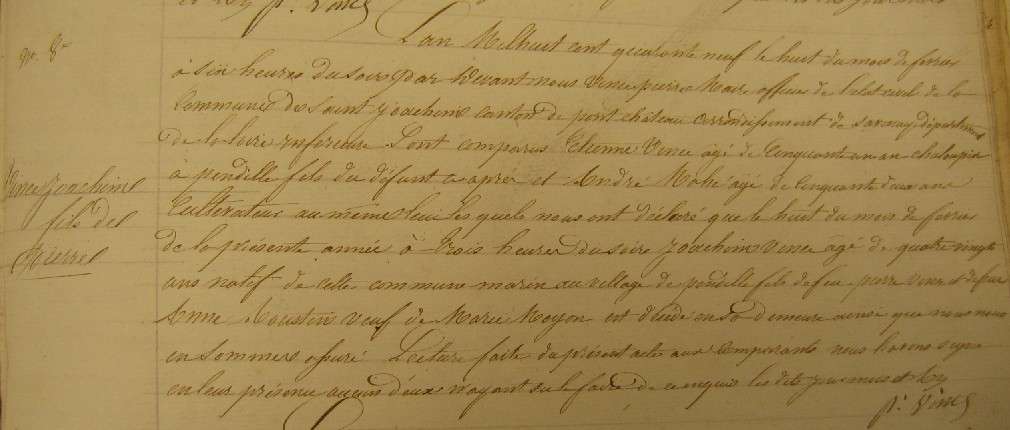 et Rey p. Vince
no. 8
L'an Mil huit cent quarante neuf le huit du mois de fevrier
à six heures du soir par devant nous Vince pierre Maire officier de l'état civile de la
Commune de Saint Joachim canton de pont château arrondissement de savenay département
de la loire inferieure Sont comparus Etienne Vince âgé de Cinquante un an
à pendille fils du défunt ci apres et André Mahé âgé de Cinquante deux ans
Cultivateur au même lieu les quels nous ont déclaré que le huit du mois de fevrier
de la présente année à trois heures du soire Joachim Vince âgé de quatre vingts
ans natif de cette commune marin au village de pendille fils de feu pierre Vince et de feue
Anne Moustin veuf de Marie Moyon est décédé en sa demeure ainsi que nous nous
en sommes assuré. Lecture faite du présent acte aux Comparants nous l'avons signé
en leur présence aucun d'eux n'ayant su le faire de ce enquis les dits jour mois et
p. Vince
Vince Joachim
fils de
Pierre